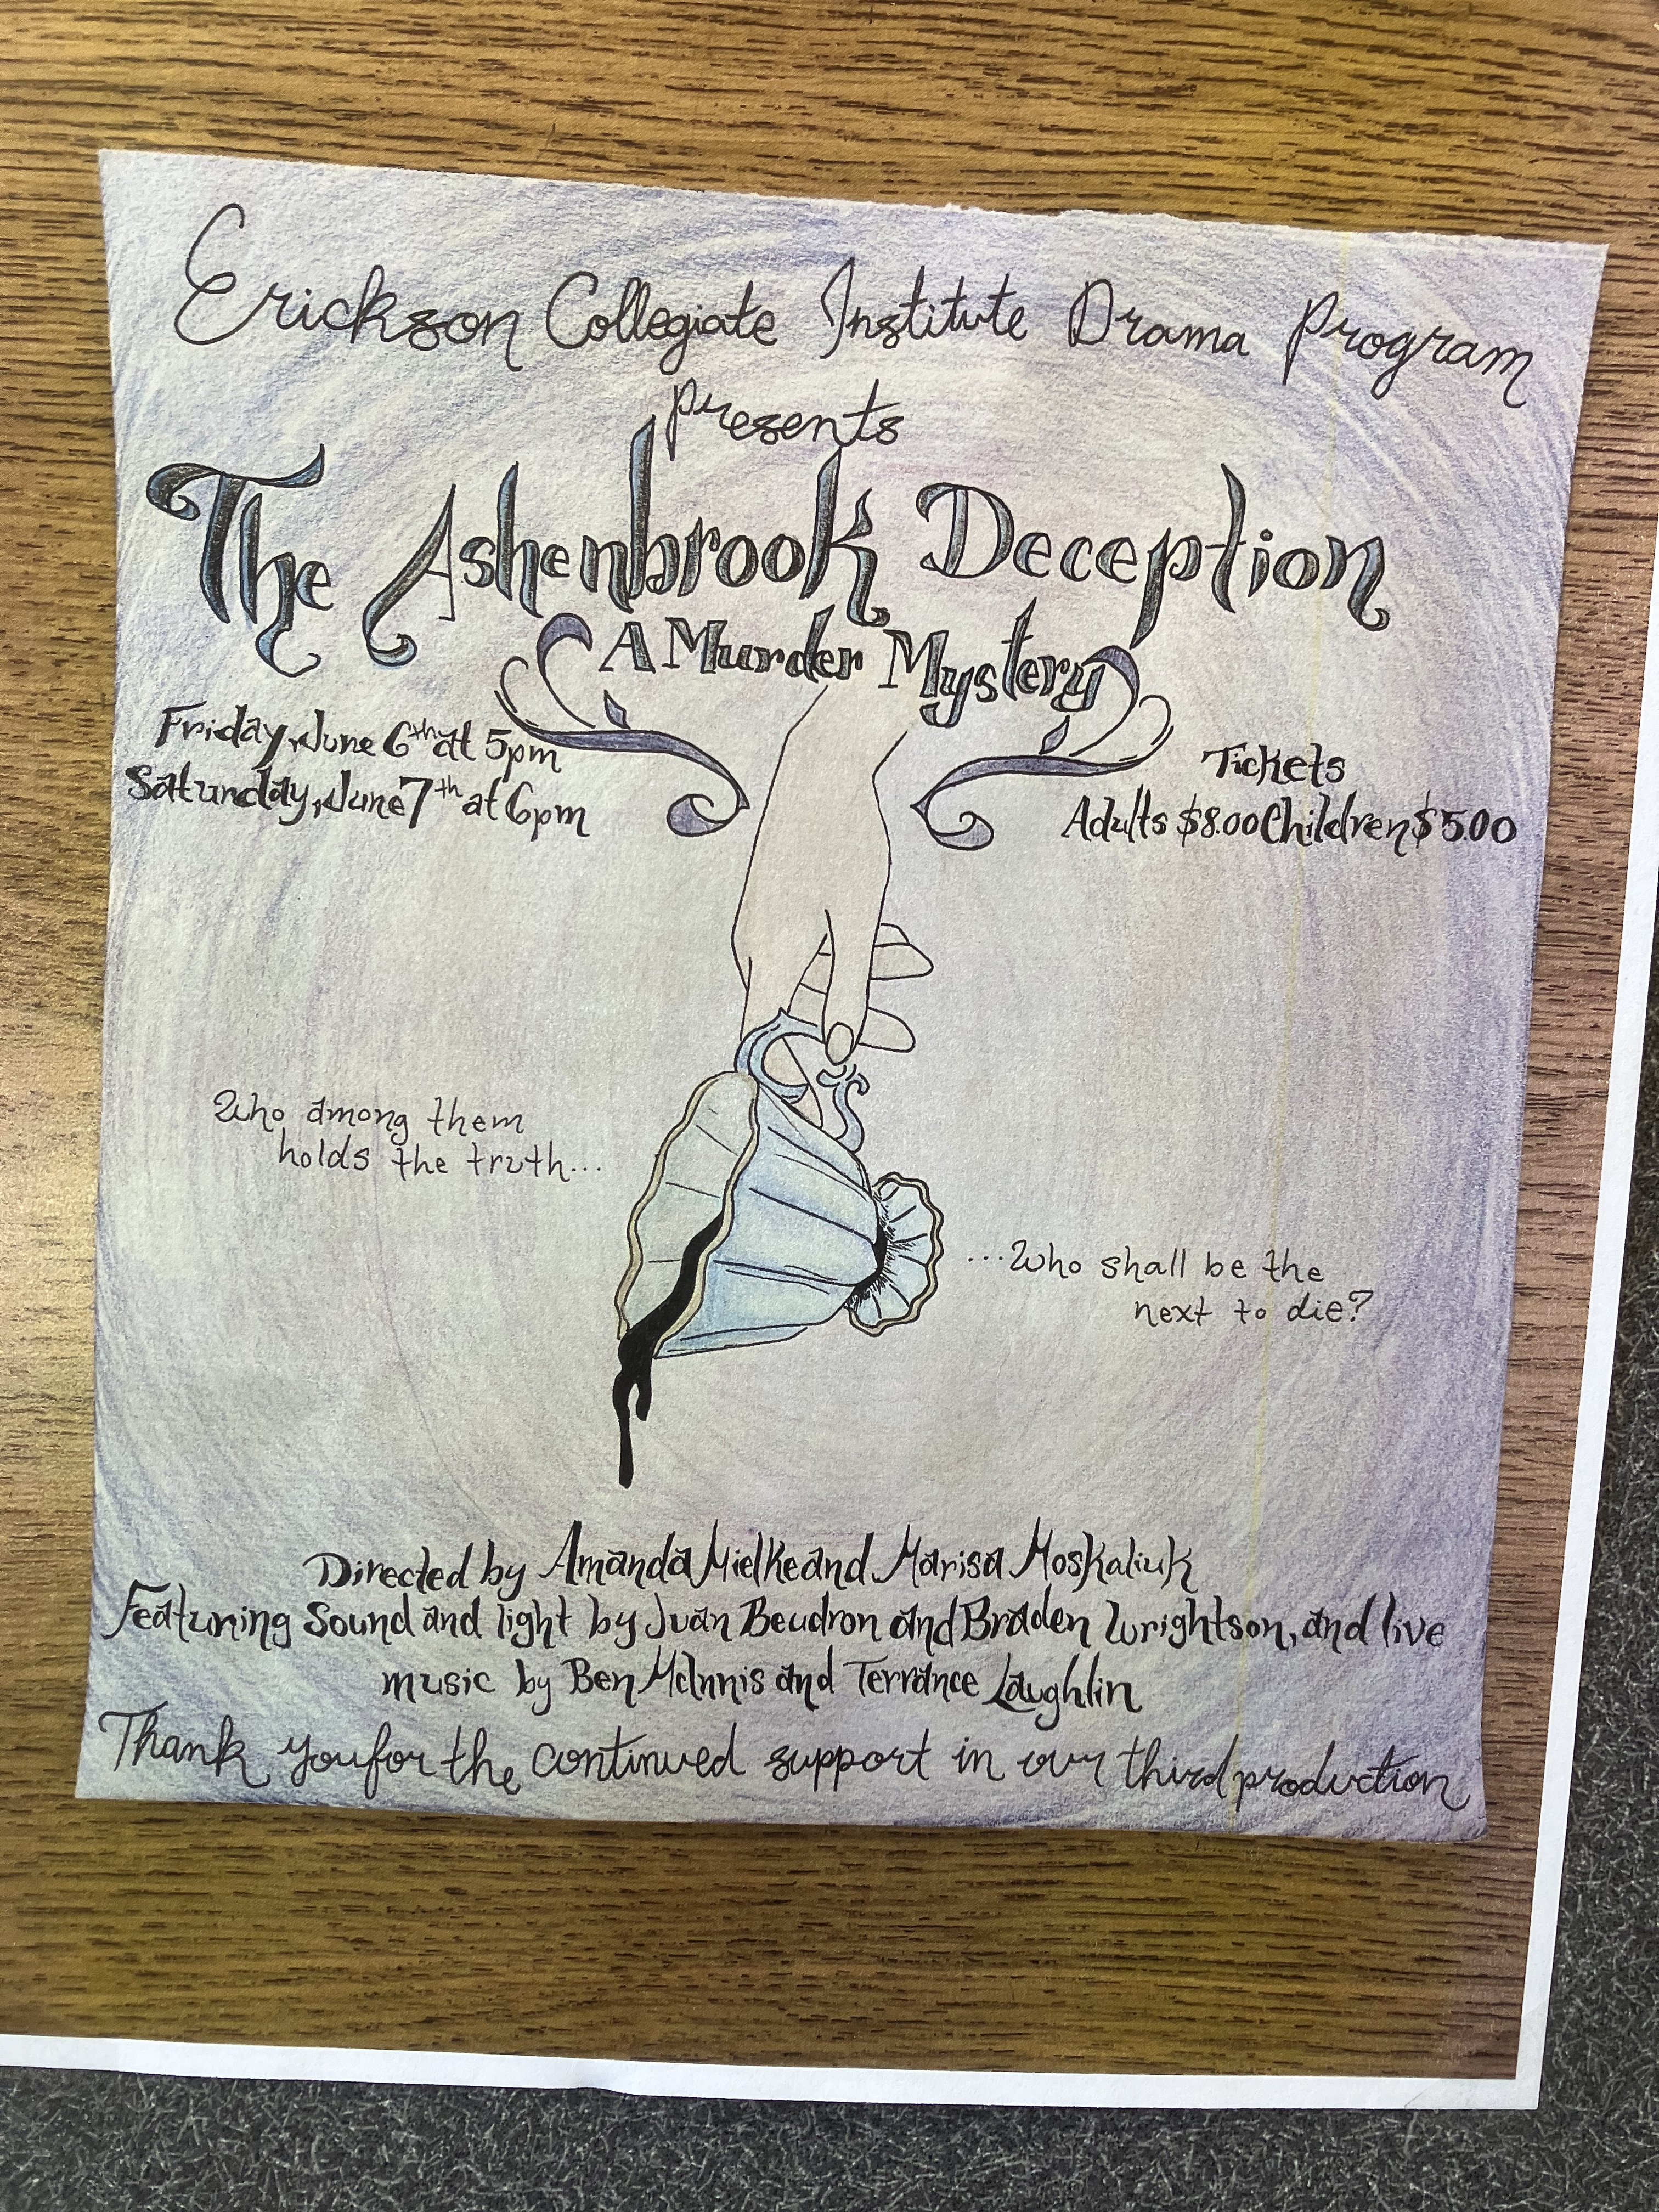 Erickson Collegiate Institute Drama Program
presents
The Ashenbrook Deception
A Murder Mystery
Friday, June 6th at 5pm
Saturday, June 7th at 6pm
Tickets
Adults $8.00 Children $5.00
Who among them
holds the truth...
...Who shall be the
next to die?
Directed by Amanda Mielke and Marisa Moskaliuk
Featuring Sound and light by Juan Beudron and Braden Wrightson, and live
music by Ben McInnis and Terrance Laughlin
Thank you for the continued support in our third production